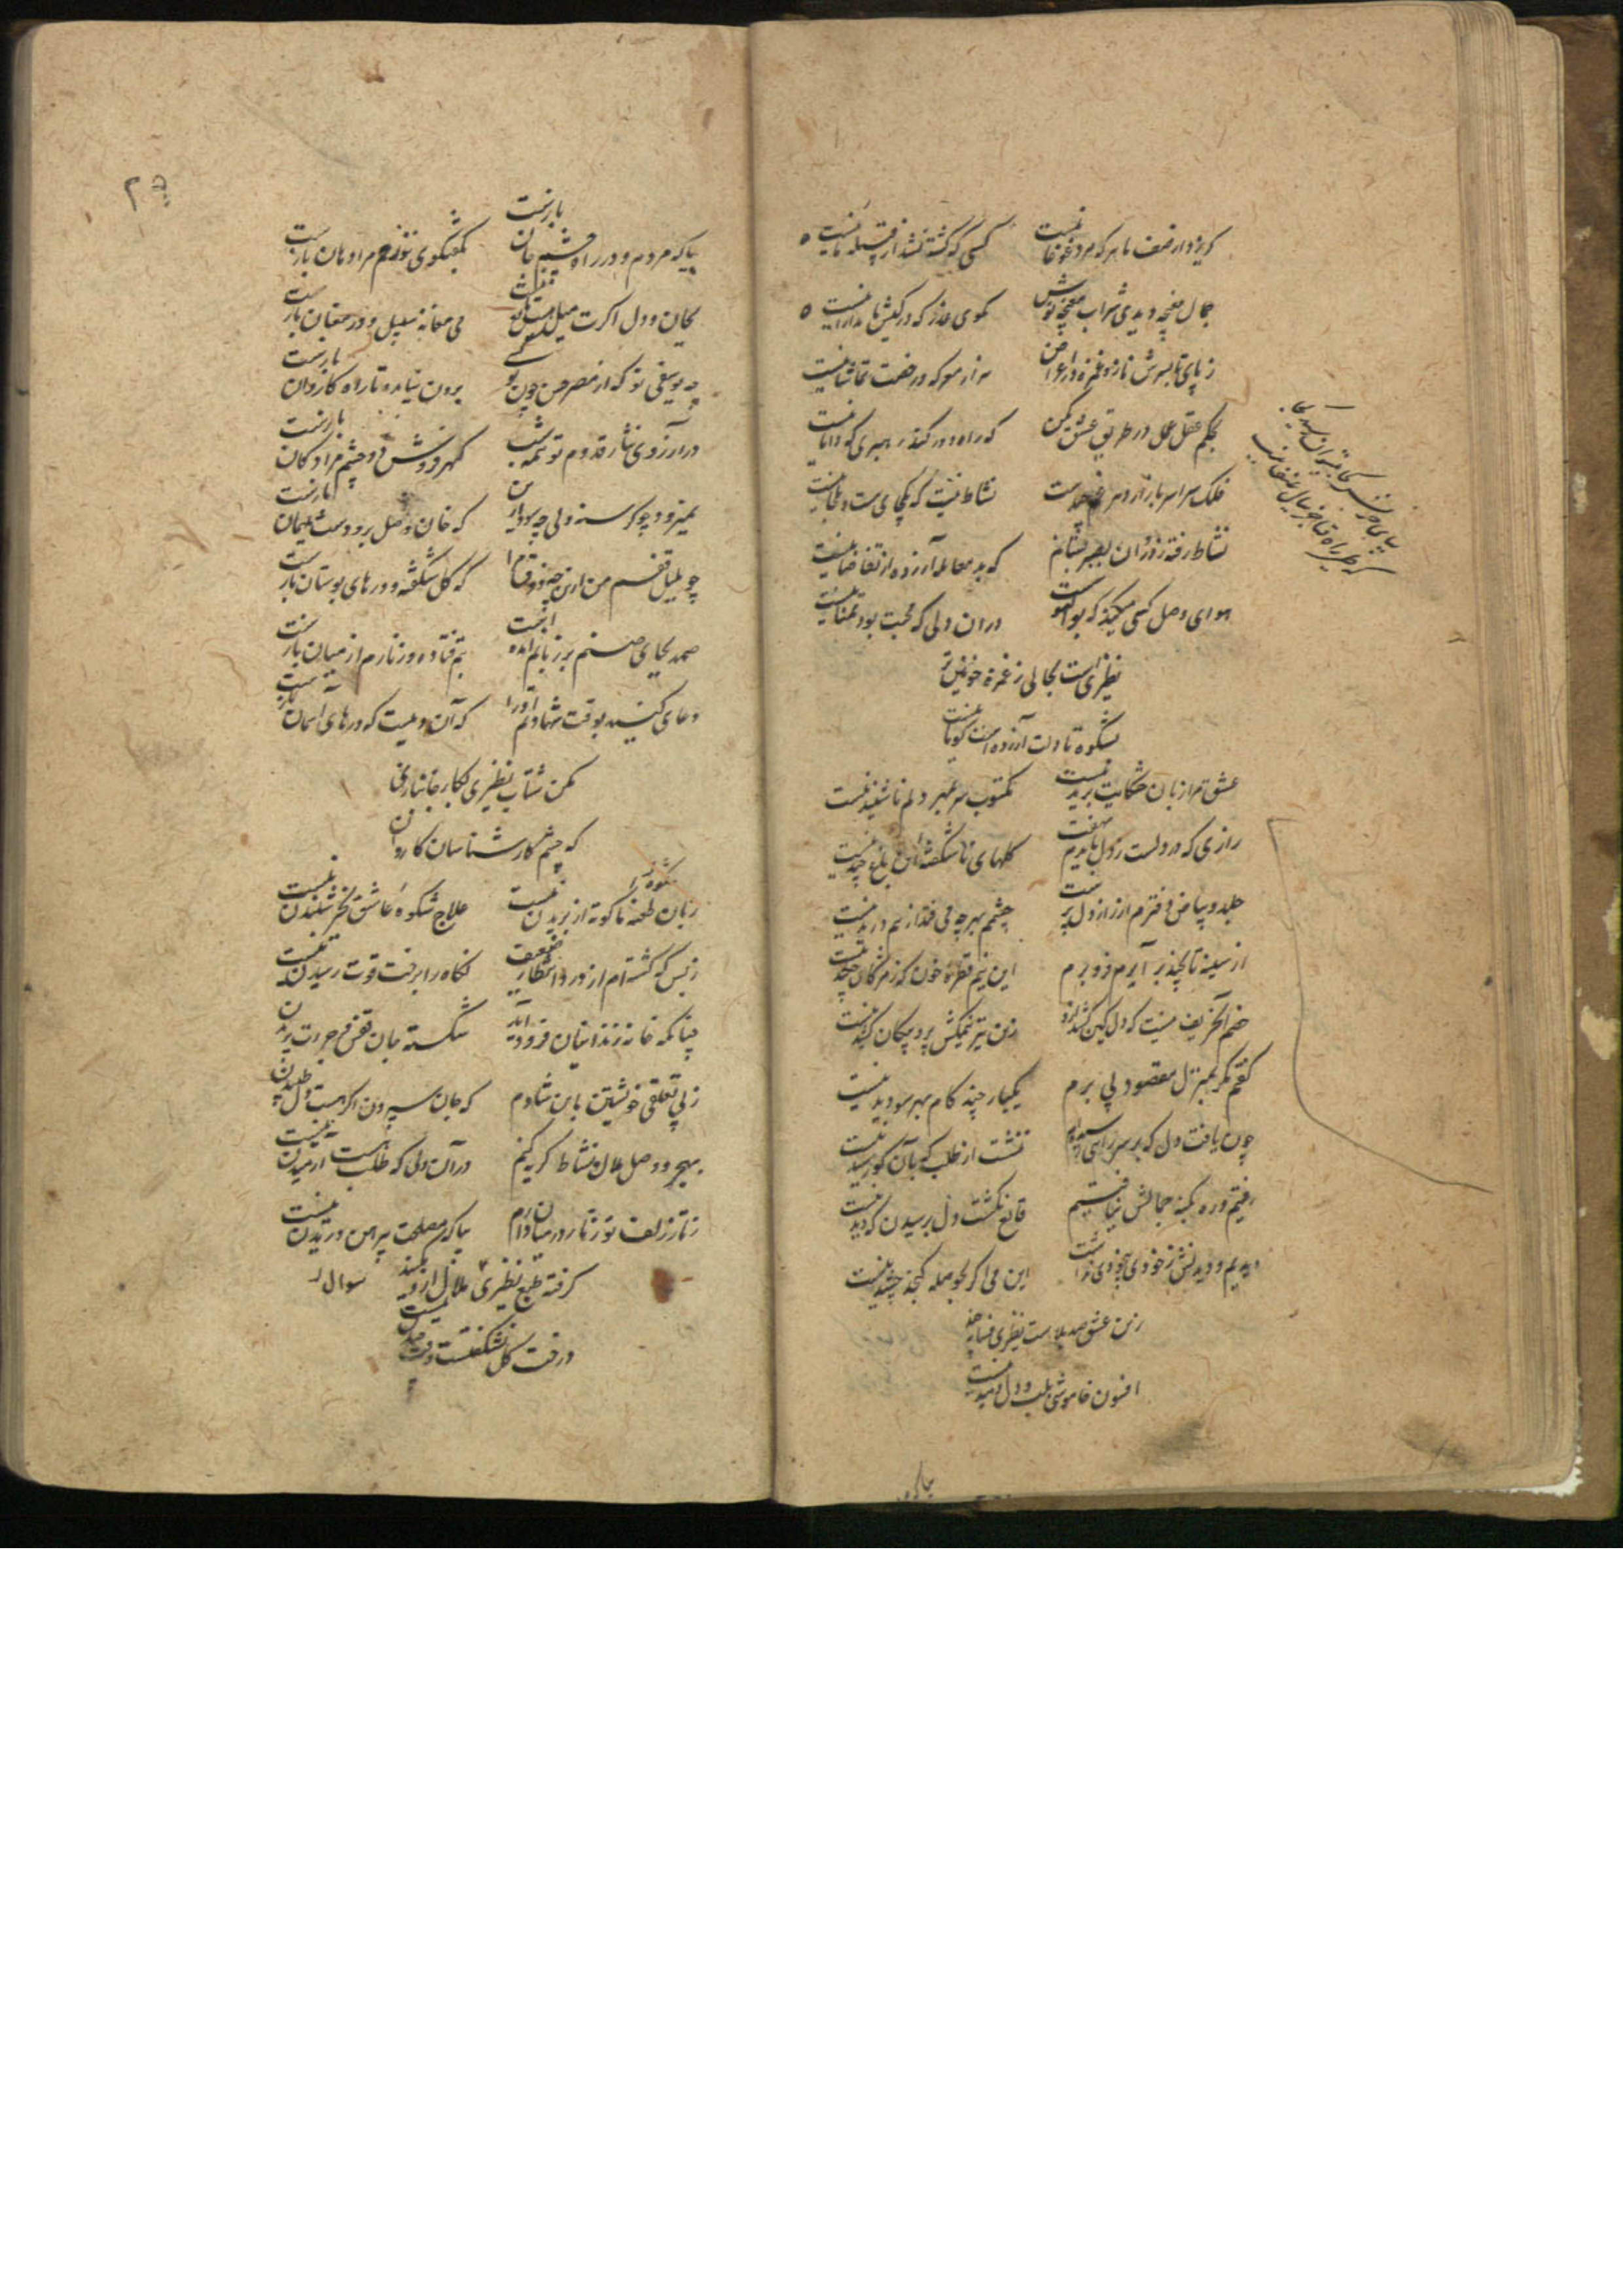 گریزد از صف ما هر که مرد غوغا نیست
کسی که کشته نشد از قبیله ما نیست
جمال مغبچه دیدی شراب مغبچه نوش
مگوی عذر که در کیش ما مدارا نیست
ز پای تا بسرش ناز و غمزه در
هزار معرکه و رخصت تماشا نیست
بحکم عقل عمل در طریق عشق مکن
که راه دور کند رهبری که دانا نیست
فلک سراسر بازار دهر غم چیدست
نشاط نیست که یکجای هست و یکجا نیست
نشاط رفته ز دوران بصبر بستانم
که بد معامله آزرده از تقاضا نیست
هوای وصل کسی میکند که بوالهوس است
در آن دلی که محبت بود تمنا نیست
نظیریست بحالی ز غمزه خونین تر
بشکوه تا دلت آزرده است گویا نیست
عشق تو از زبان حکایت بریده نیست
مکتوب سر بمهر دلم ناشنیده نیست
رازی که در دلست ز دل بایدم نهفت
گلهای ناشکفته این باغ چیده نیست
جلد و بیاض دفترم از راز دل پرست
چشمم بهر چه می فتد از هم دریده نیست
از سینه تا بچند برآرم فرو برم
این نیم قطره خون که ز مژگان چکیده نیست
زین تیر نیمکش پر و پیکان کشیده نیست
گفتم مگر بمنزل مقصود پی برم
یکبار چند گام بهر سو دویده نیست
چون یافت دل که بر سر راهی رسیده ام
ننشست از طلب که بآن گو رسیده نیست
رفتیم و ره بکنه جمالش نیافتیم
قانع نگشت دل برسیدن که دیده نیست
دیدیم و دیدنش ز خودی بیخودی نداشت
این می اگر بحوصله گنجد چشیده نیست
زین عشق صد بلاست نظیری فسانه چند
افسون خامشی بلب و دل دمیده نیست
بیا که مردم و در راه چشم جان بازست
بگفتگوی توزخم مرا دهان بازست
بجان و دل اگرت میل هست
می مغانه سبیل و در مغان بازست
چه یوسفی تو که از مصر حسن چون تو کسی
برون نیامده تا راه کاروان بازست
در آرزوی نثار قدوم تو همه شب
گهرفروش دو چشم مرا دکان بازست
بمیرد ار چو گرسنه ولی چه سود از من
که خان وصل برو دست میهمان بازست
چو بلبل قفسم من ازین چه ذوق مرا
که گل شکفته و درهای بوستان بازست
صمد بجای صنم بر زبانم آمده است
بتم فتاده و زنارم از میان بازست
دعای کنید بوقت شهادتم او را
که آن دمیست که درهای آسمان بازست
مکن شتاب نظیری بکار جانبازی
که چشم کارشناسان کاروان
زبان طعنه ما کوته از بریدن نیست
علاج شکوه عاشق بجز شنیدن نیست
ز بس که گشته ام از درد انتظار ضعیف
نگاه را برخت قوت رسیدن نیست
چنانکه خانه ز زندانیان فرود آید
شکسته جان قفس و جرات پریدن
ز بی تعلقی خویشتن باین شادم
که جان سپردن اگر هست دل طپیدن نیست
بهجر و وصل ملال و نشاط گریه کنیم
در آن دلی که طلب هست آرمیدن نیست
ز تار زلف تو زنار در میان دارم
بیا که مصلحت پیرهن دریدن نیست
گرفته طبع نظیری ملال
سوال
درخت گل نشکفتست وقت چیدن نیست